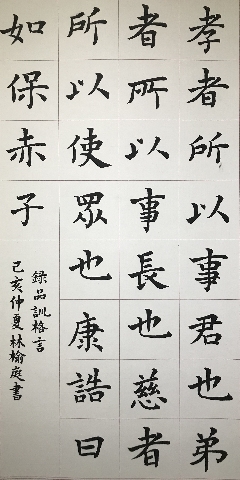 孝者所以事君也弟
者所以事長也慈者
所以使眾也康誥曰
如保赤子
錄品訓格言
己亥仲夏林榆庭書